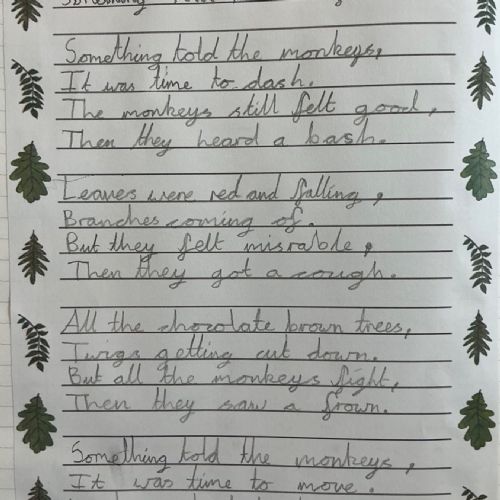 Something told the monkeys,
It was time to dash.
The monkeys still felt good,
Then they heard a bash.
Leaves were red and falling,
Branches coming of.
But they felt misrable,
Then they got a cough.
All the chocolate brown trees,
Twigs getting cut down.
But all the monkeys fight,
Then they saw a frown.
Something told the monkeys,
It was time to move.